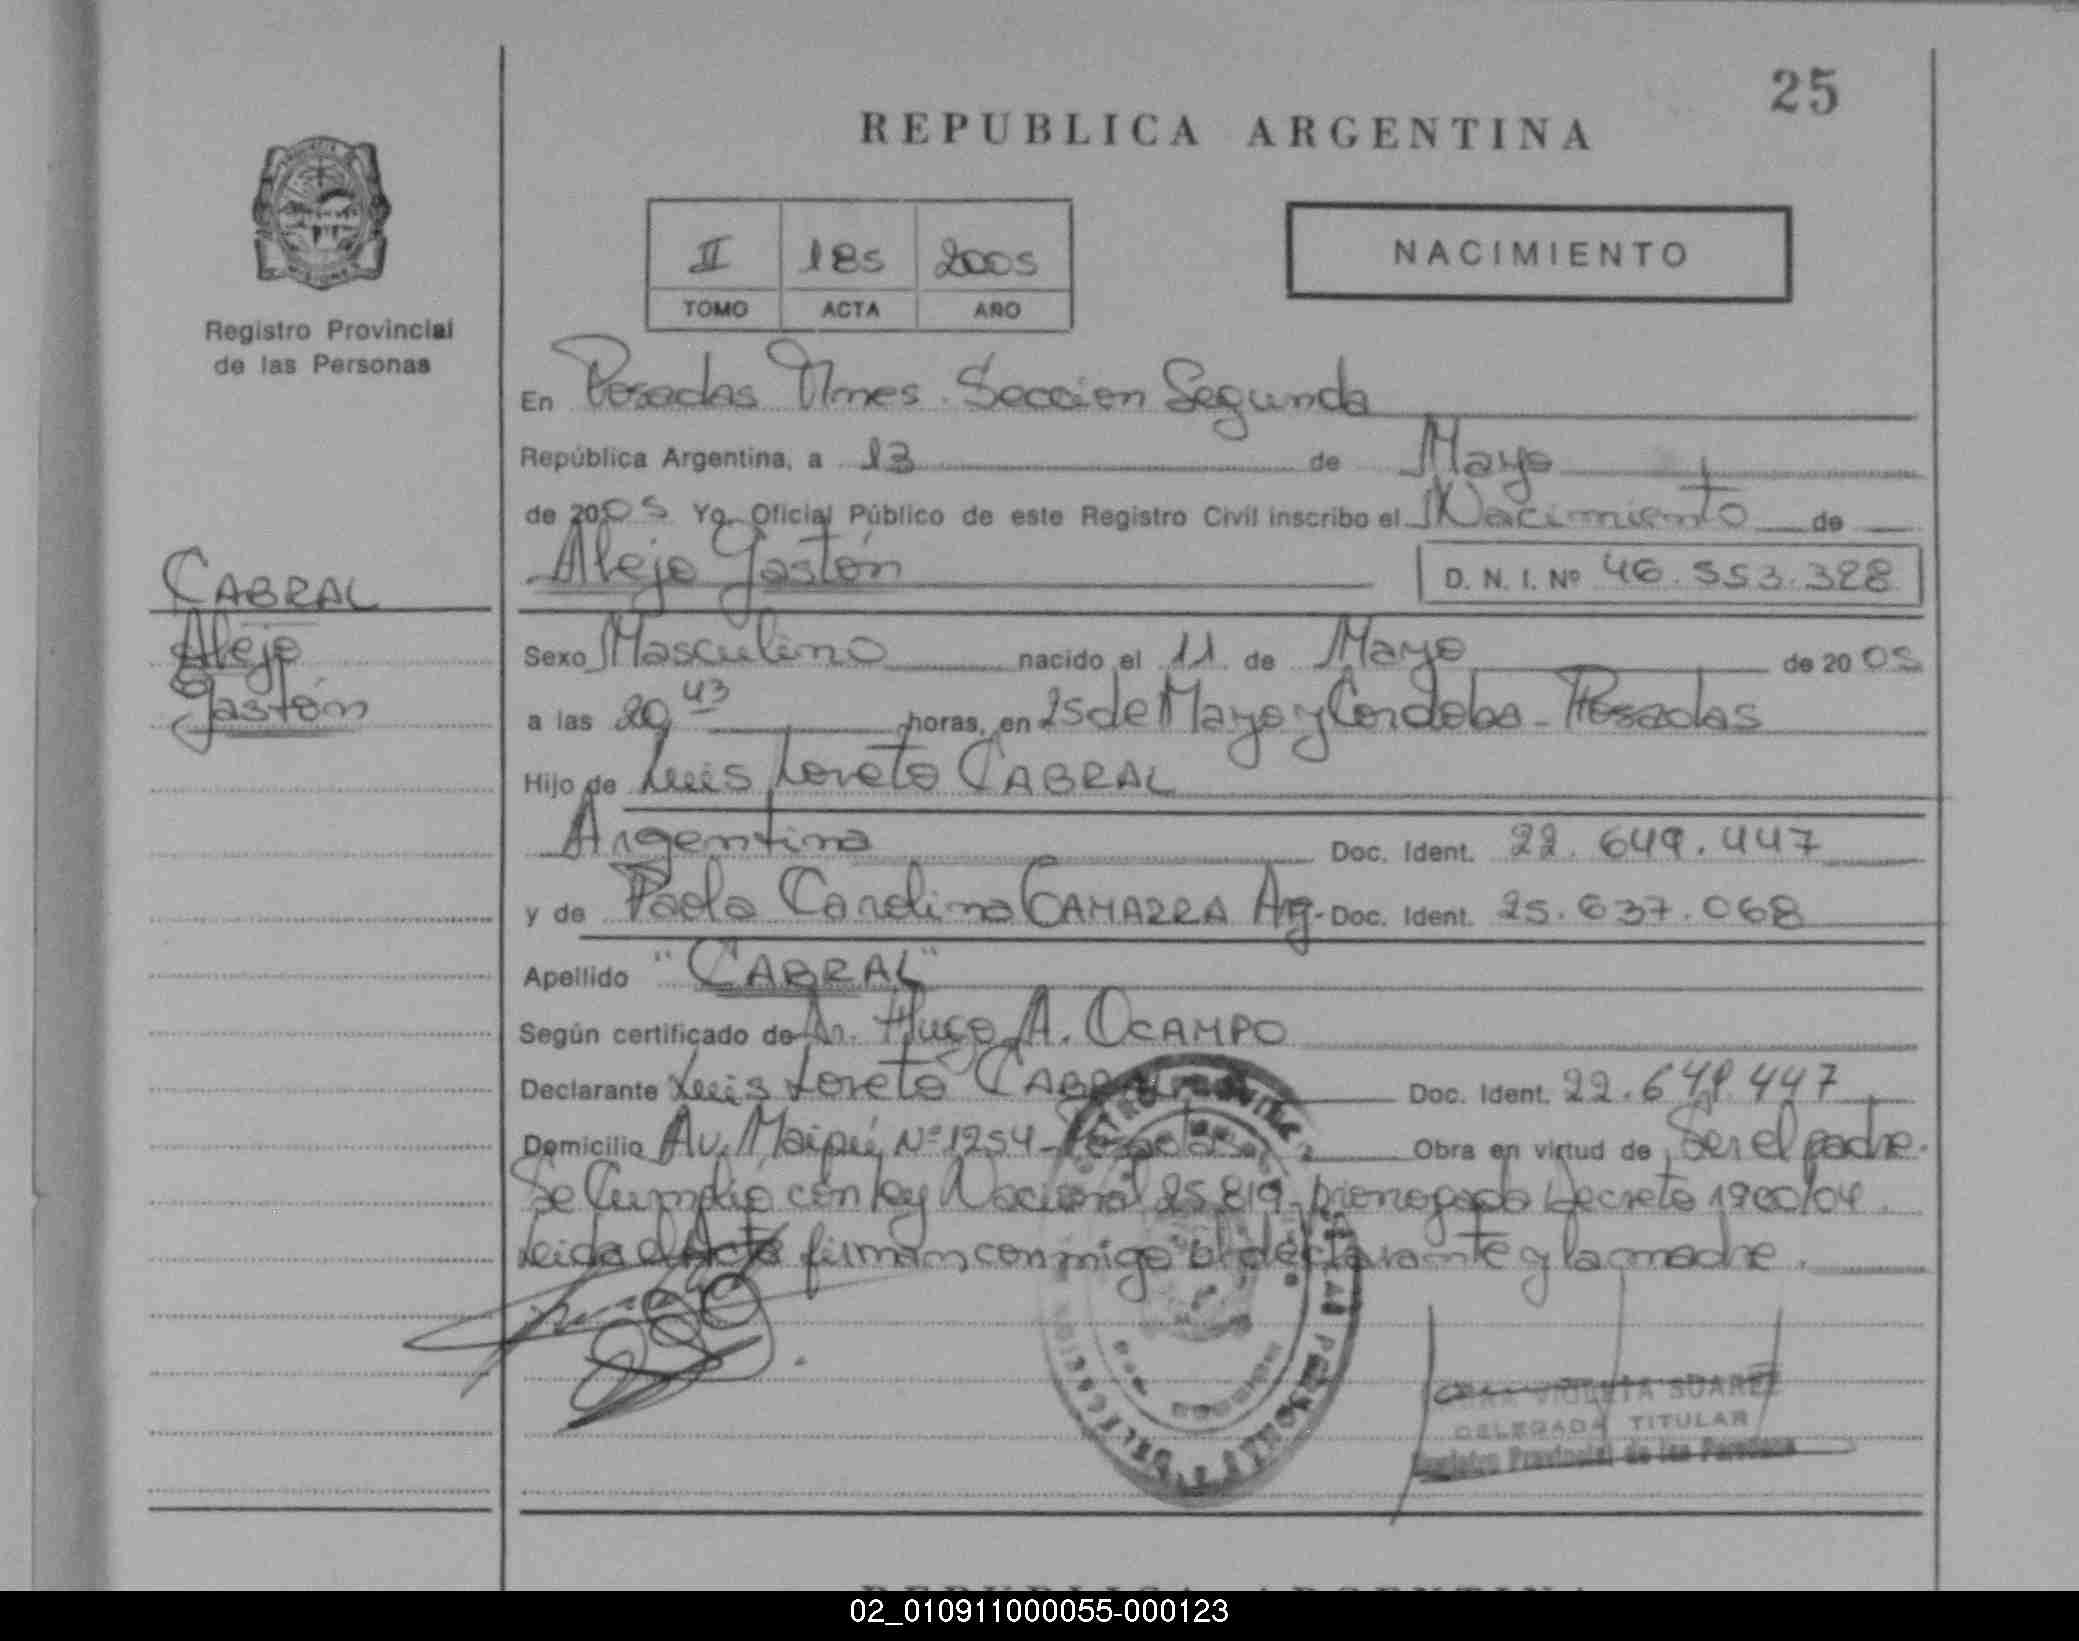 25
REPUBLICA ARGENTINA
II 185 2005
TOMO ACTA AÑO
NACIMIENTO
Registro Provincial
de las Personas
En Posadas Mnes. Sección Segunda
República Argentina, a 13 de Mayo
de 2005 Yo, Oficial Público de este Registro Civil inscribo el Nacimiento de
Alejo Gastón D. N. I. Nº 46.553.328
CABRAL
Alejo
Gastón
Sexo Masculino nacido el 11 de Mayo de 2005
a las 20,43 horas, en 25 de Mayo y Cordoba - Posadas
Hijo de Luis Loreto CABRAL
Argentina Doc. Ident. 22.649.447
y de Paola Carolina GAMARRA Arg. Doc. Ident. 25.637.068
Apellido "CABRAL"
Según certificado de Dr. Hugo A. OCAMPO
Declarante Luis Loreto CABRAL Doc. Ident. 22.649.447
Domicilio Av. Maipú Nº 1254 - Posadas Obra en virtud de Ser el padre.
Se Cumplio con ley Nacional 25.819 - prorrogado Decreto 1900/04.
Leida el Acta firman conmigo el declarante y la madre.
VIOLETA SUAREZ
DELEGADA TITULAR
Registro Provincial de las Personas
02_010911000055-000123